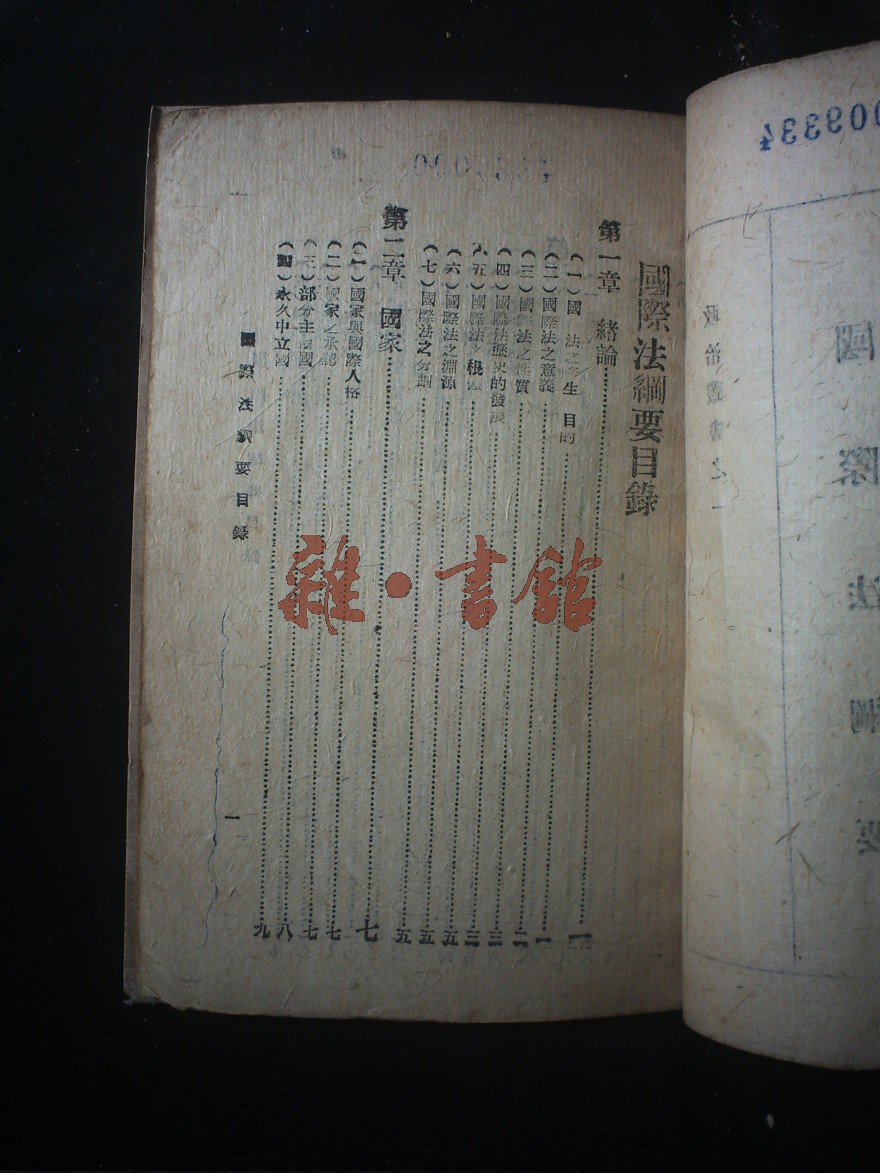 國際法綱要目錄
第一章 緒論
(一)國 法之 生 目的
(二)國際法之意義
(三)國 法之性質
(四)國際法歷史的發展
五)國際法 根
(六)國際法之淵源
(七)國際法之分類
第二章 國家
(一)國家與國際人格
(二)國家之承認
(三)部分主 國
(四)永久中立國
一
一
二
三
三
五
五
五
七
七
七
八
九
國際法綱要目錄
一
雜·書館
009334
政治叢書之一
國際法綱要